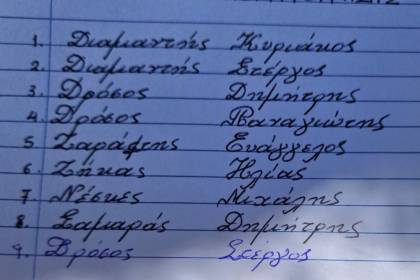 1. Διαμαντής Κυριάκος
2. Διαμαντής Στέργος
3. Δρόσος Δημήτρης
4. Δρόσος Παναγιώτης
5 Ζαράφης Ευάγγελος
6. Ζήκας Ηλίας
7. Νέσκες Μιχάλης
8. Σαμαράς Δημήτρης
9. Δρόσος Στέργος